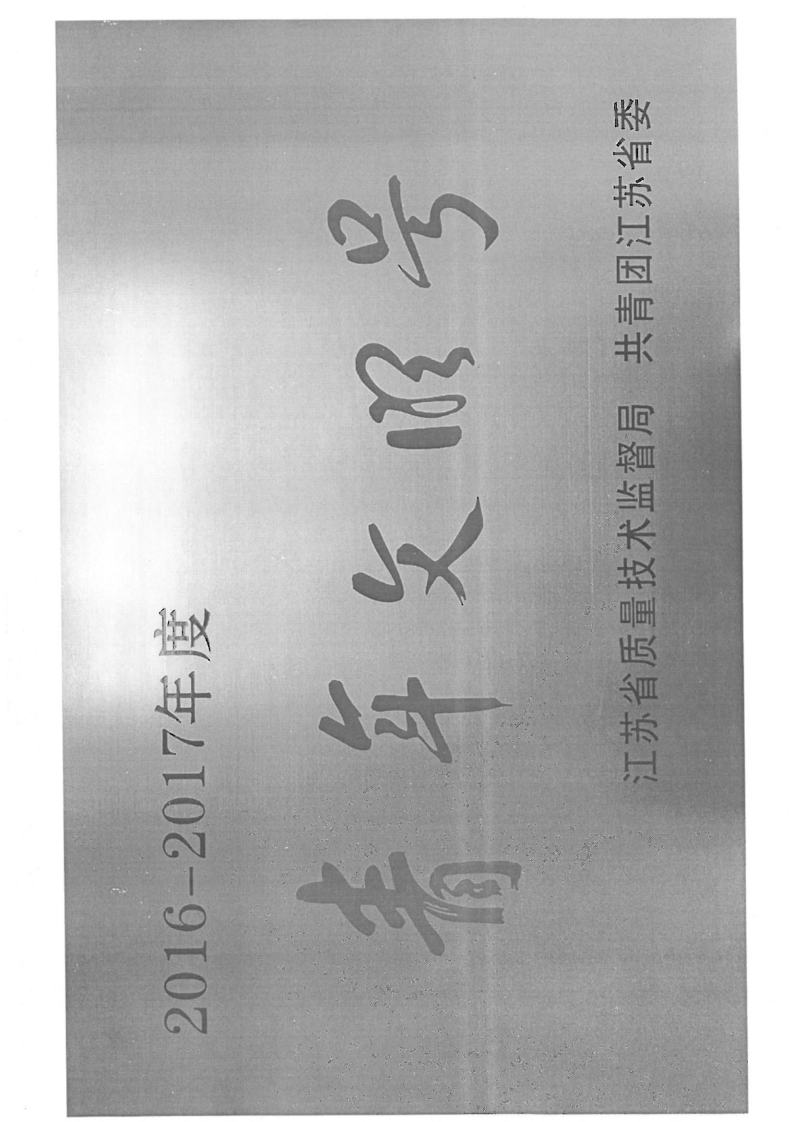 2016-2017年度
青年文明号
江苏省质量技术监督局 共青团江苏省委